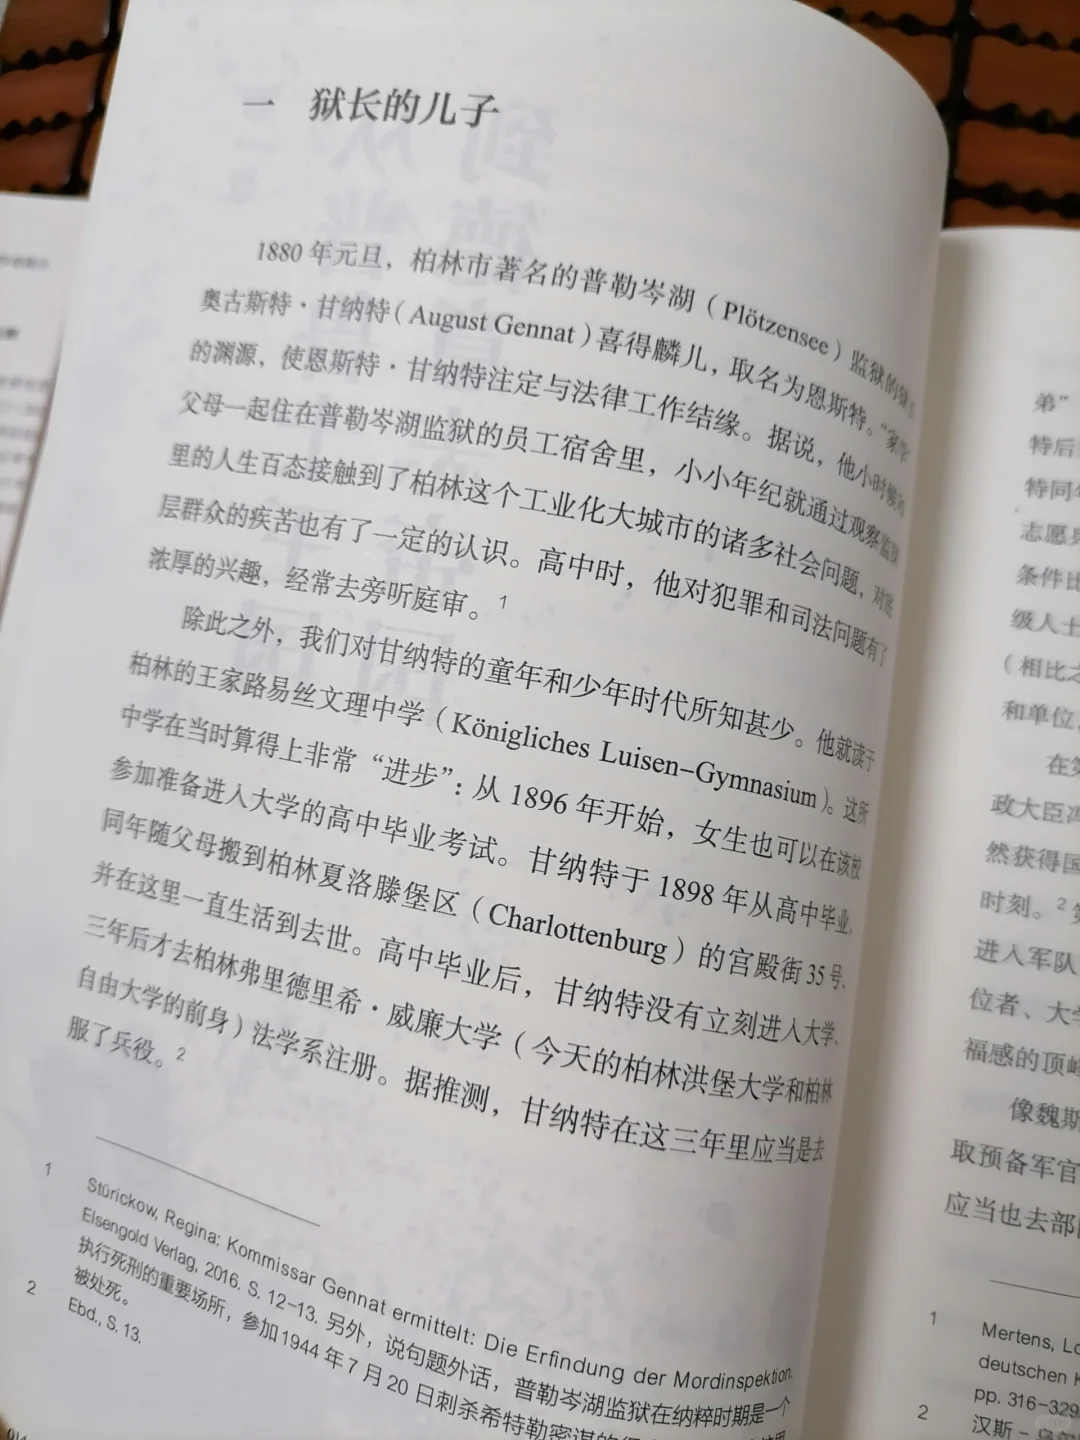 一 狱长的儿子
1880 年元旦，柏林市著名的普勒岑湖（Plötzensee）监狱的狱长
奥古斯特·甘纳特（August Gennat）喜得麟儿，取名为恩斯特。“家学”
的渊源，使恩斯特·甘纳特注定与法律工作结缘。据说，他小时候和
父母一起住在普勒岑湖监狱的员工宿舍里，小小年纪就通过观察监狱
里的人生百态接触到了柏林这个工业化大城市的诸多社会问题，对底
层群众的疾苦也有了一定的认识。高中时，他对犯罪和司法问题有了
浓厚的兴趣，经常去旁听庭审。1
除此之外，我们对甘纳特的童年和少年时代所知甚少。他就读于
柏林的王家路易丝文理中学（Königliches Luisen-Gymnasium）。这所
中学在当时算得上非常“进步”：从 1896 年开始，女生也可以在该校
参加准备进入大学的高中毕业考试。甘纳特于 1898 年从高中毕业，
同年随父母搬到柏林夏洛滕堡区（Charlottenburg）的宫殿街 35 号，
并在这里一直生活到去世。高中毕业后，甘纳特没有立刻进入大学，
三年后才去柏林弗里德里希·威廉大学（今天的柏林洪堡大学和柏林
自由大学的前身）法学系注册。据推测，甘纳特在这三年里应当是去
服了兵役。2
1 Stürickow, Regina: Kommissar Gennat ermittelt: Die Erfindung der Mordinspektion.
Elsengold Verlag, 2016. S. 12-13. 另外，说句题外话，普勒岑湖监狱在纳粹时期是一个
执行死刑的重要场所，参加1944 年 7 月 20 日刺杀希特勒密谋的
被处死。
2 Ebd., S. 13.
弟”
特后
特同年
志愿兵
条件比
级人士
（相比之
和单位
在第
政大臣冯
然获得国
时刻。2
进入军队
位者、大学
福感的顶峰
像魏斯
取预备军官
应当也去部
1 Mertens, Lo
deutschen
pp. 316-329
2 汉斯-乌尔